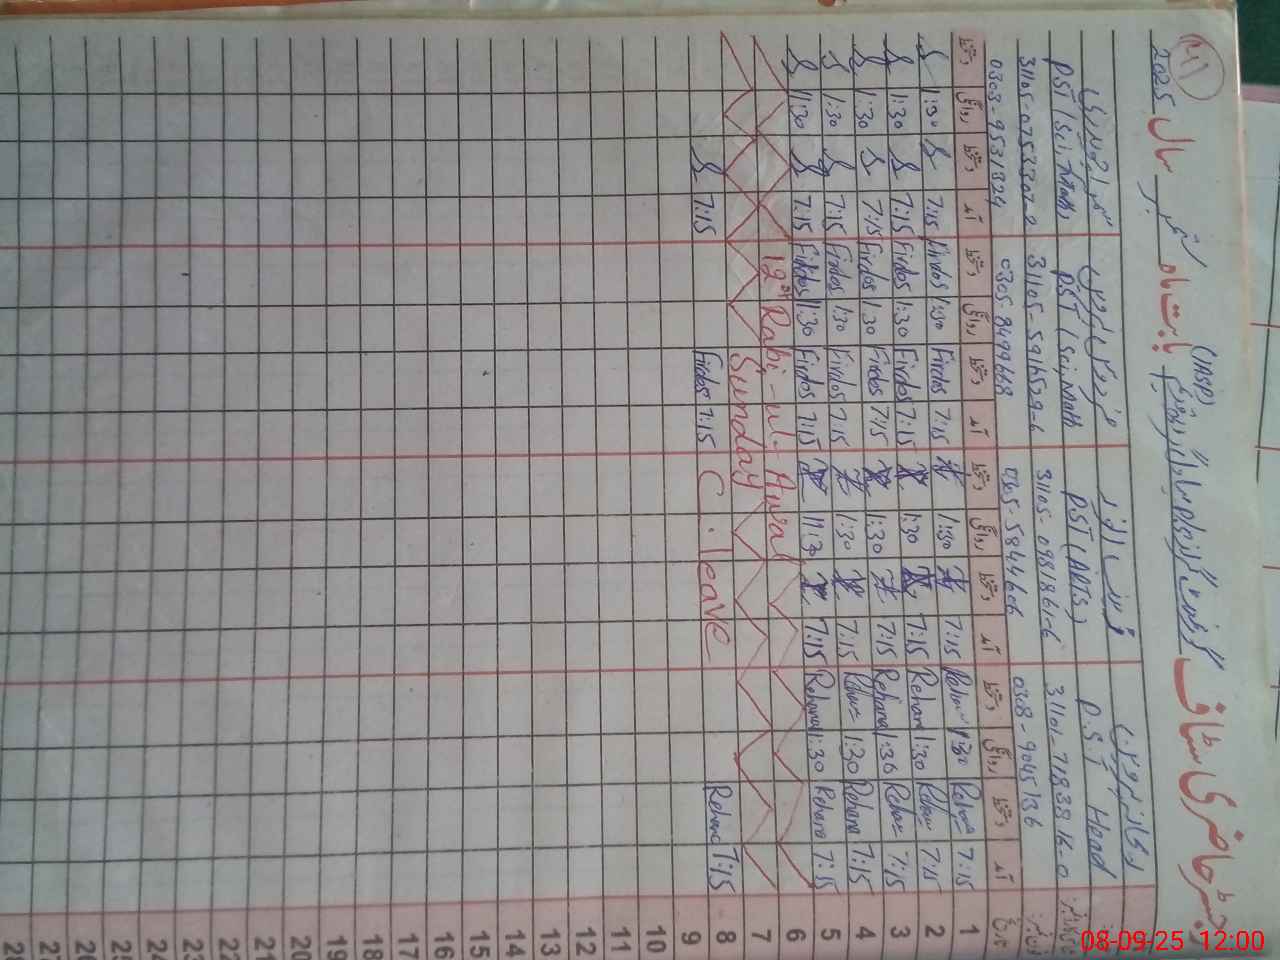 رجسٹر حاضری سٹاف گورنمنٹ گرلز
(IASP)
بابت ماہ ستمبر سال 2025
41
ریحانہ پروین
P.S.T Head
31101-7183816-0
0308-9045136
PST (ARTS)
31105-0981861-6
0305-5844606
فردوس پروین
PST (Sci, Math)
31105-5916529-6
0305-8499668
PST (Sci, Math)
31105-0753307-2
0303-9531324
تاریخ آمد دستخط روانگی دستخط آمد دستخط روانگی دستخط آمد دستخط روانگی دستخط آمد دستخط روانگی دستخط
1 7:15 Rehana 1:30 Rehana 7:15 1:30 7:15 Firdos 1:30 Firdos 7:15 1:30
2 7:15 Rehana 1:30 Rehana 7:15 1:30 7:15 Firdos 1:30 Firdos 7:15 1:30
3 7:15 Rehana 1:30 Rehana 7:15 1:30 7:15 Firdos 1:30 Firdos 7:15 1:30
4 7:15 Rehana 1:30 Rehana 7:15 1:30 7:15 Firdos 1:30 Firdos 7:15 1:30
5 7:15 Rehana 1:30 Rehana 7:15 11:30 7:15 Firdos 1:30 Firdos 7:15 11:30
6 12th Rabi-ul-Awal
7 Sunday
8 7:15 Rehana C. leave 7:15 Firdos 7:15
9
10
11
12
13
14
15
16
17
18
19
20
21
22
23
24
25
26
27
28
08-09-25 12:00